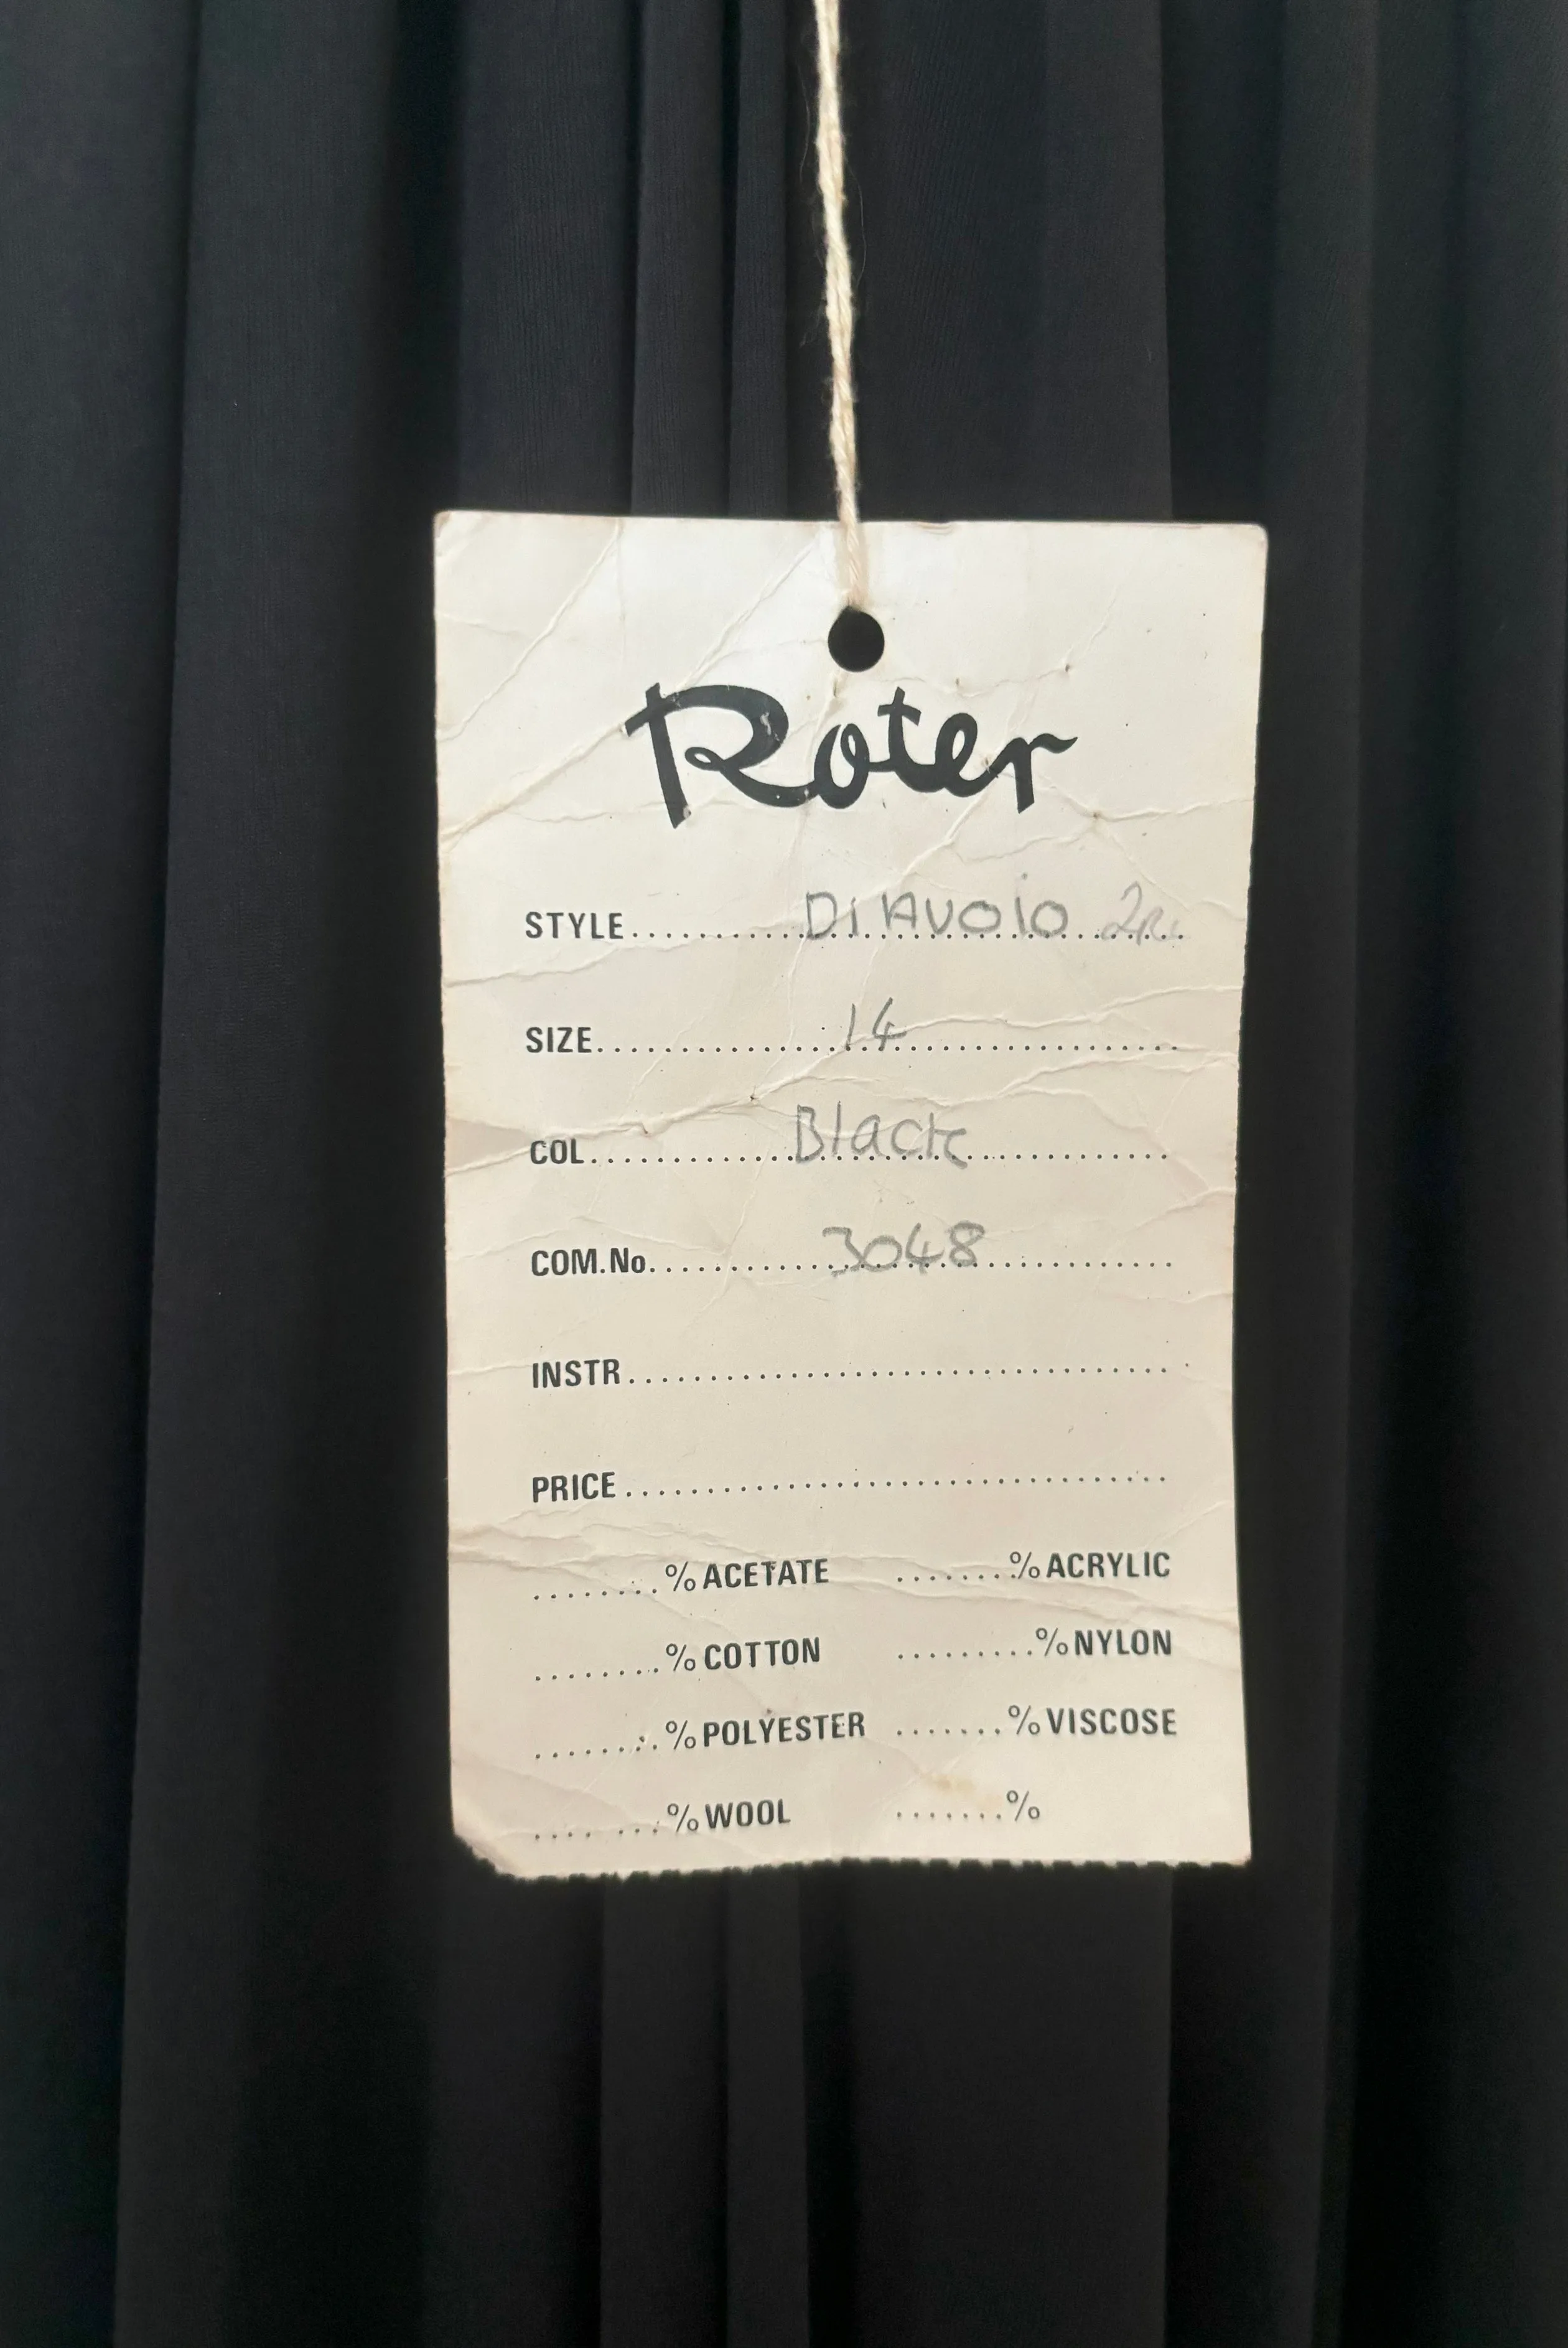 Roter
STYLE.......... DIAVOlO
SIZE.......... 14
COL.......... Black
COM.No.......... 3048
INSTR..........
PRICE..........
........% ACETATE ........% ACRYLIC
........% COTTON ........% NYLON
........% POLYESTER ........% VISCOSE
........% WOOL ........%